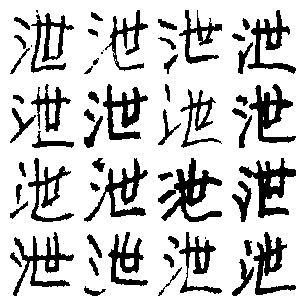 泄泄泄泄
泄泄泄泄
泄泄泄泄
泄泄泄泄